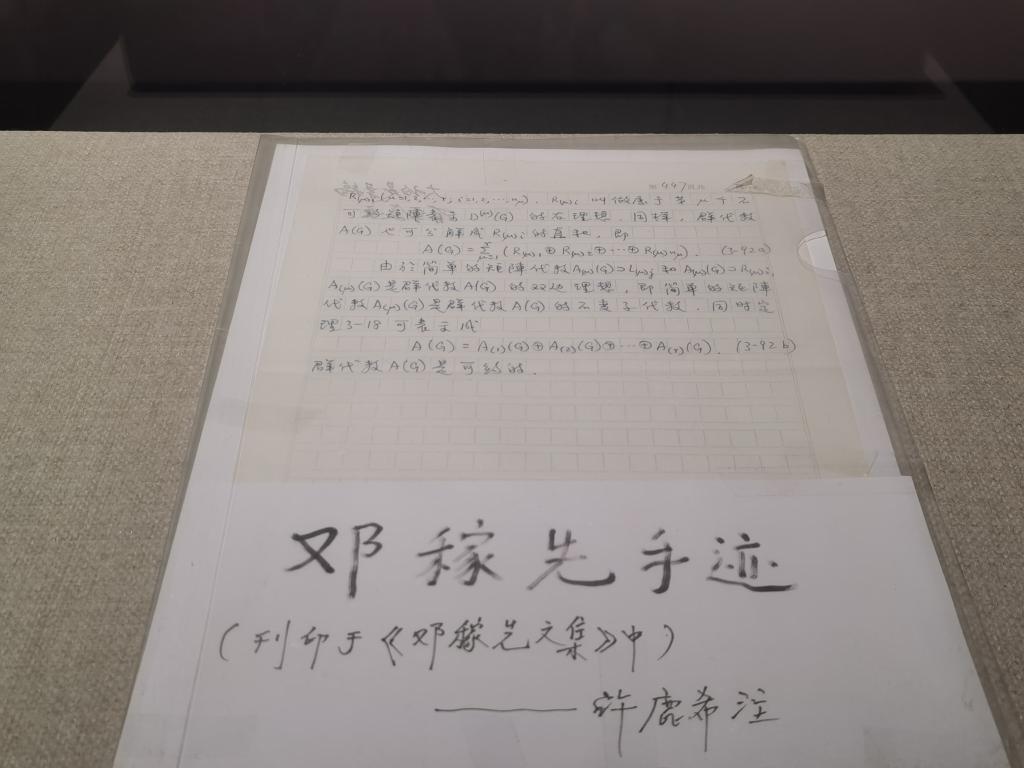 第 447 页共
R(μ)i (μ=1,2,…,r, i=1,2,…,nμ). R(μ)i 叫做属于第 μ 个不
可约矩陣表示 D(μ)(G) 的右理想. 同样, 群代数
A(G) 也可分解成 R(μ)i 的直和, 即
A(G) = Σ (R(μ)1 ⊕ R(μ)2 ⊕ ⋯ ⊕ R(μ)nμ). (3-92a)
由於简单的矩陣代数 A(μ)(G) ⊃ L(μ)j 和 A(μ)(G) ⊃ R(μ)i,
A(μ)(G) 是群代数 A(G) 的双边理想, 即简单的矩陣
代数 A(μ)(G) 是群代数 A(G) 的不变子代数. 同时定
理3-18 可表示成
A(G) = A(1)(G) ⊕ A(2)(G) ⊕ ⋯ ⊕ A(r)(G). (3-92b)
群代数 A(G) 是可约的.
邓稼先手迹
(刊印于《邓稼先文集》中)
——许鹿希注